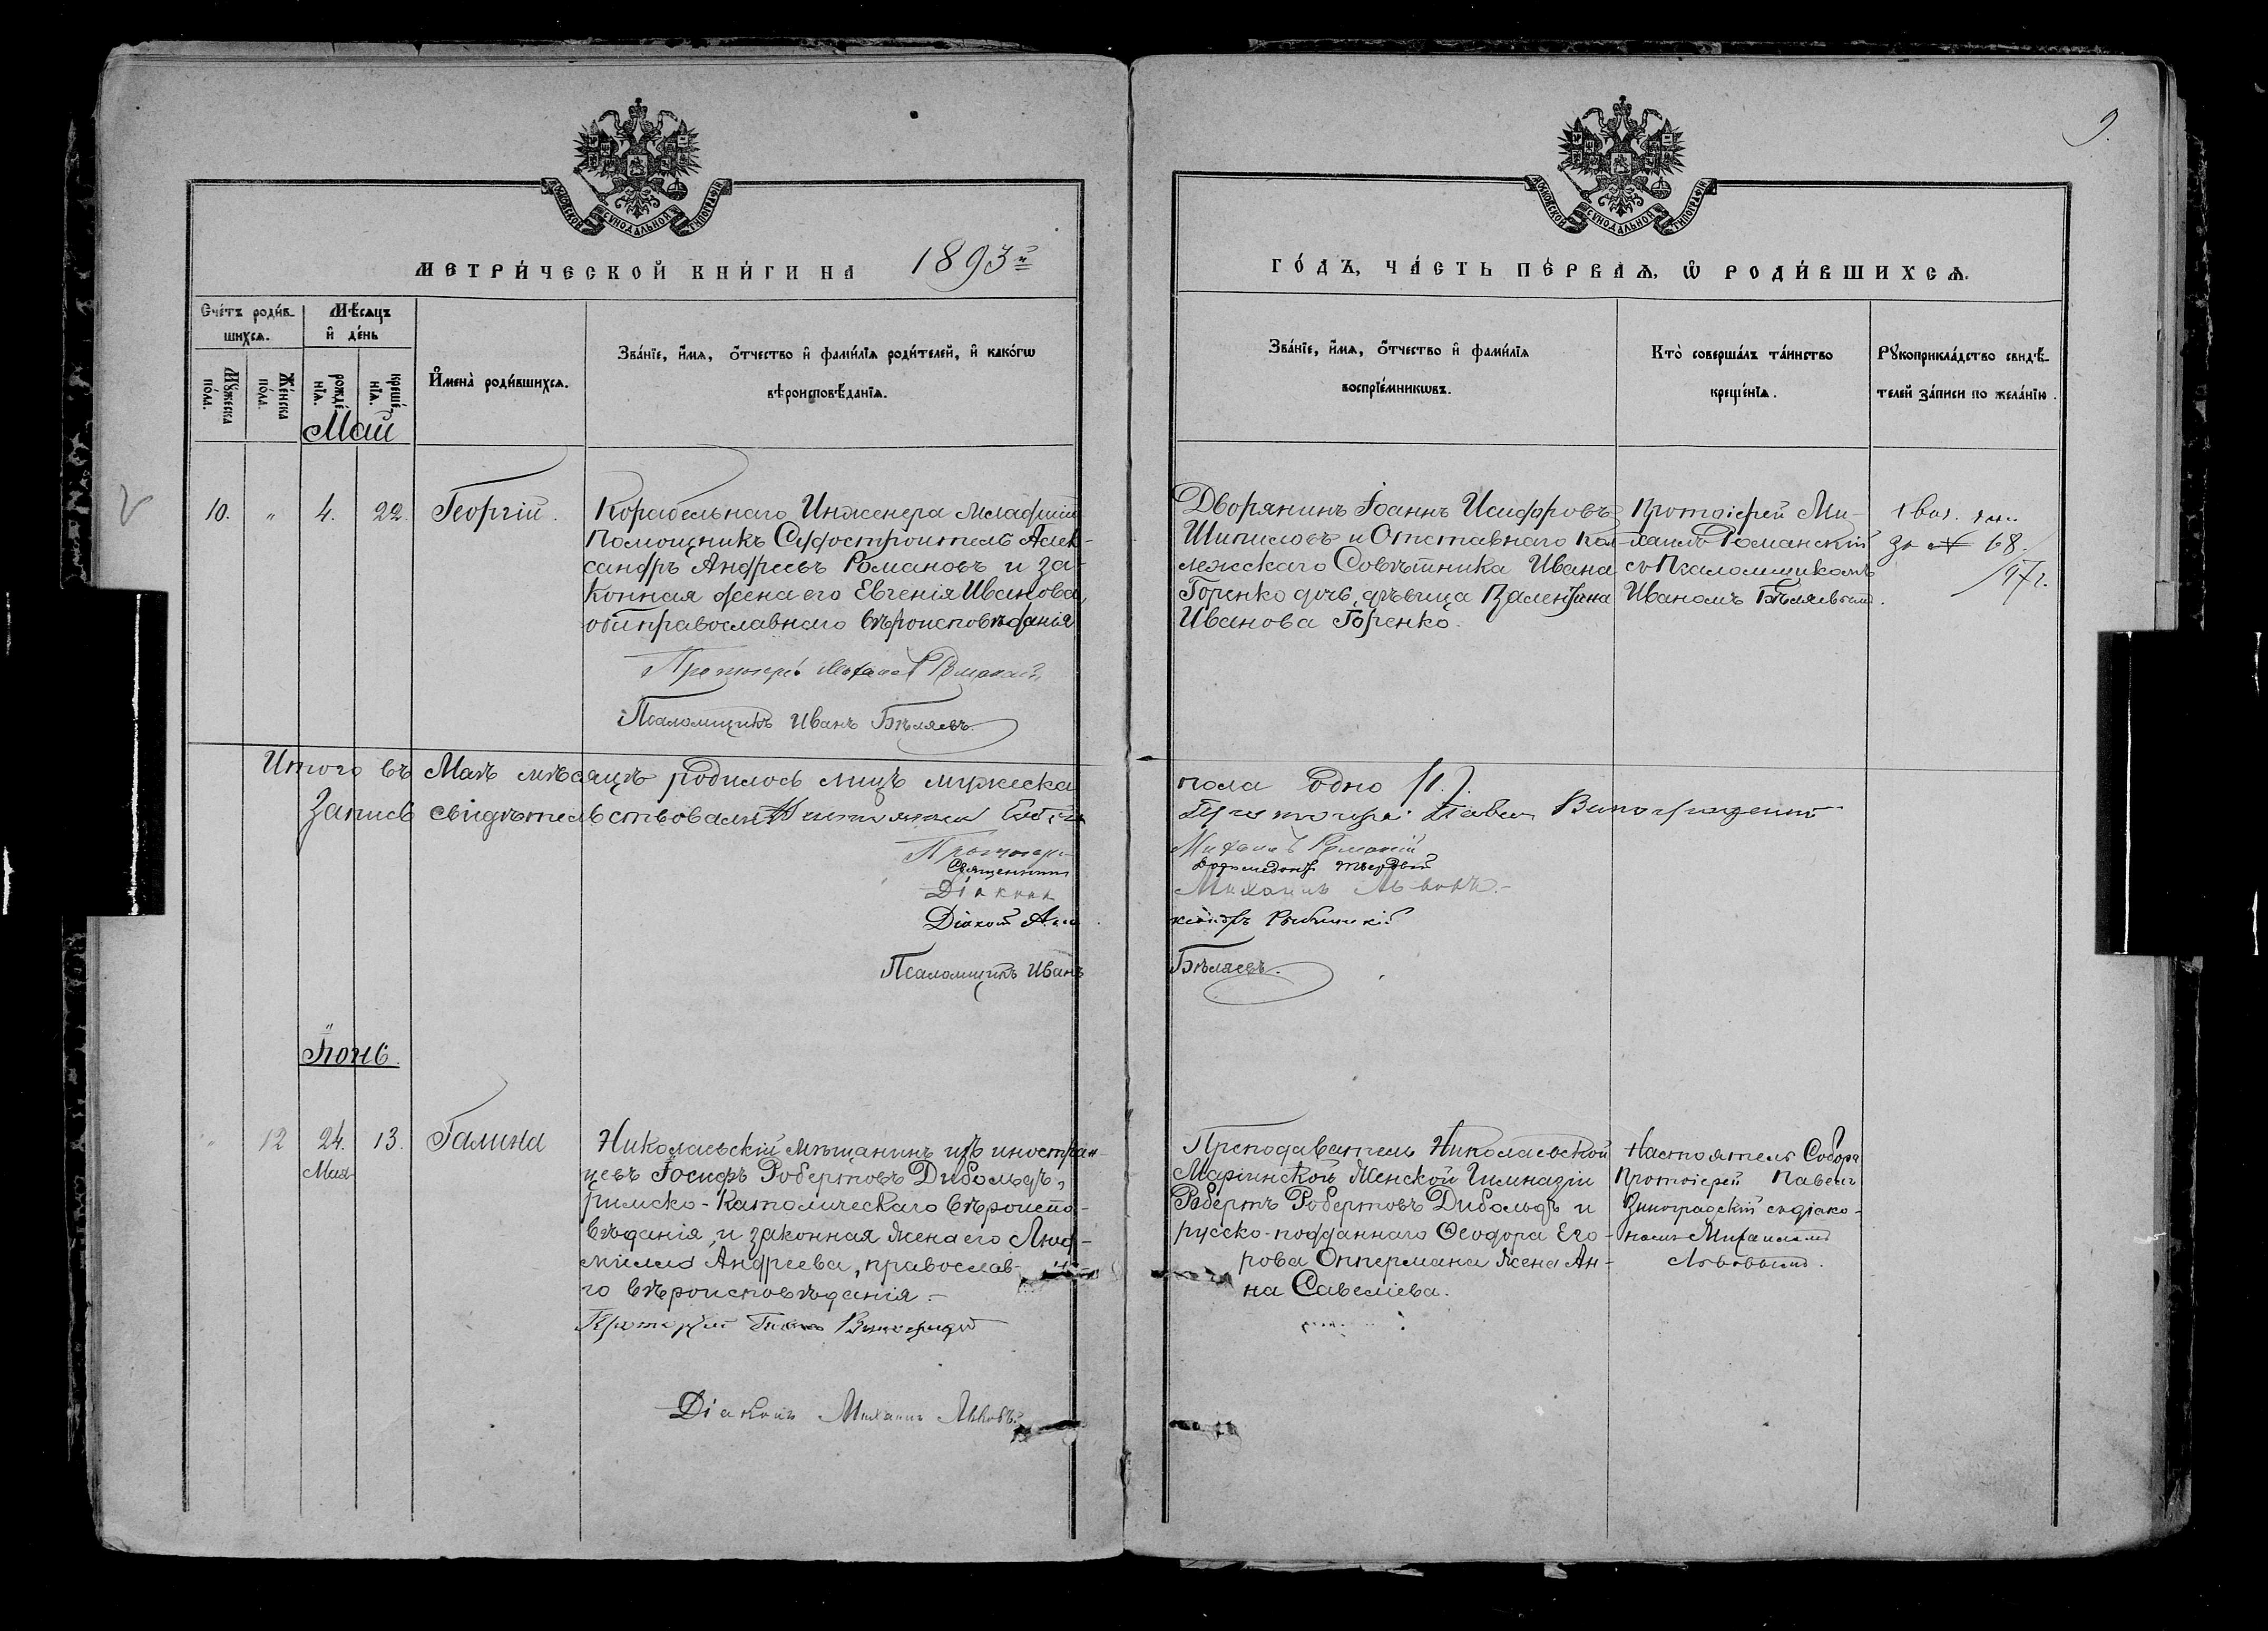 9.
МОСКОВСКОЙ СѴНОДАЛЬНОЙ ТИПОГРАФІИ
МОСКОВСКОЙ СѴНОДАЛЬНОЙ ТИПОГРАФІИ
МЕТРИ́ЧЕСКОЙ КНИ́ГИ НА 1893й
ГО́ДЪ, ЧА́СТЬ ПЕ́РВАЯ, Ѿ РОДИ́ВШИХСѦ.
Сче́тъ роди́в-
шихсѧ.
Мѣ́сяцъ
и҆ де́нь
Мꙋ́жеска
по́ла.
Же́нска
по́ла.
рожде́
нїѧ.
креще́
нїѧ.
И҆мена̀ роди́вшихсѧ.
Зва́нїе, и҆́мѧ, ѻ҆́тчество и҆ фами́лїѧ роди́телей, и҆ како́гѡ
вѣроисповѣ́данїѧ.
Зва́нїе, и҆́мѧ, ѻ҆́тчество и҆ фами́лїѧ
воспрїе́мникѡвъ.
Кто̀ соверша́лъ та́инство
креще́нїѧ.
Рꙋкоприкла́дство свидѣ́-
телей за́писи по жела́нїю.
Май
10. " 4. 22. Георгій.
Корабельнаго Инженера младшій
Помощникъ Судостроитель Алек-
сандръ Андреевъ Романовъ и за-
конная жена его Евгенія Иванова,
оба православнаго вѣроисповѣданія
Протоіерей Михаилъ Романскій
Псаломщикъ Иванъ Бѣляевъ.
Дворянинъ Іоаннъ Иосифовъ
Шиписловъ и Отставнаго Кол-
лежскаго Совѣтника Ивана
Горенко дочь, дѣвица Валентина
Иванова Горенко.
Протоіерей Ми-
хаилъ Романскій
съ Псаломщикомъ
Иваномъ Бѣляевымъ.
за № 68.
97 г.
Итого въ Маѣ мѣсяцѣ родилось лицъ мужеска
пола одно (1.)
Запись свидѣтельствовали: Настоятель Собора
Протоіерей Павелъ Виноградскій
Протоіерей
Михаилъ Романскій
Священникъ
Діаконъ
Михаилъ Львовъ.
Діаконъ Але
ксандръ
Псаломщикъ Иванъ
Бѣляевъ.
Іюнь.
" 12 24. 13. Галина
Мая
Николаевскій мѣщанинъ изъ иностран-
цевъ Іосифъ Робертовъ Дибольдъ,
римско-католическаго вѣроиспо-
вѣданія, и законная жена его Люд-
милла Андреева, православ-
го вѣроисповѣданія.
Протоіерей Павелъ Виноградскій
Діаконъ Михаилъ Львовъ.
Преподаватель Николаевской
Маріинской Женской Гимназіи
Робертъ Робертовъ Дибольдъ и
русско-подданнаго Ѳеодора Его-
рова Оппермана жена Ан-
на Савеліева.
Настоятель Собора
Протоіерей Павелъ
Виноградскій съ діако-
номъ Михаиломъ
Львовымъ.